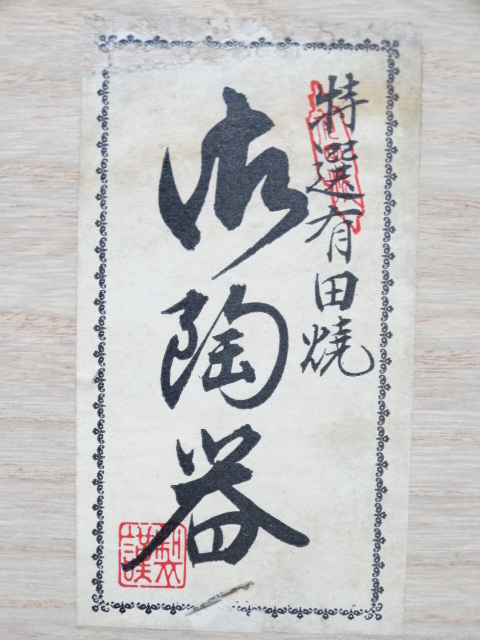 特選有田焼
御陶器
謹製